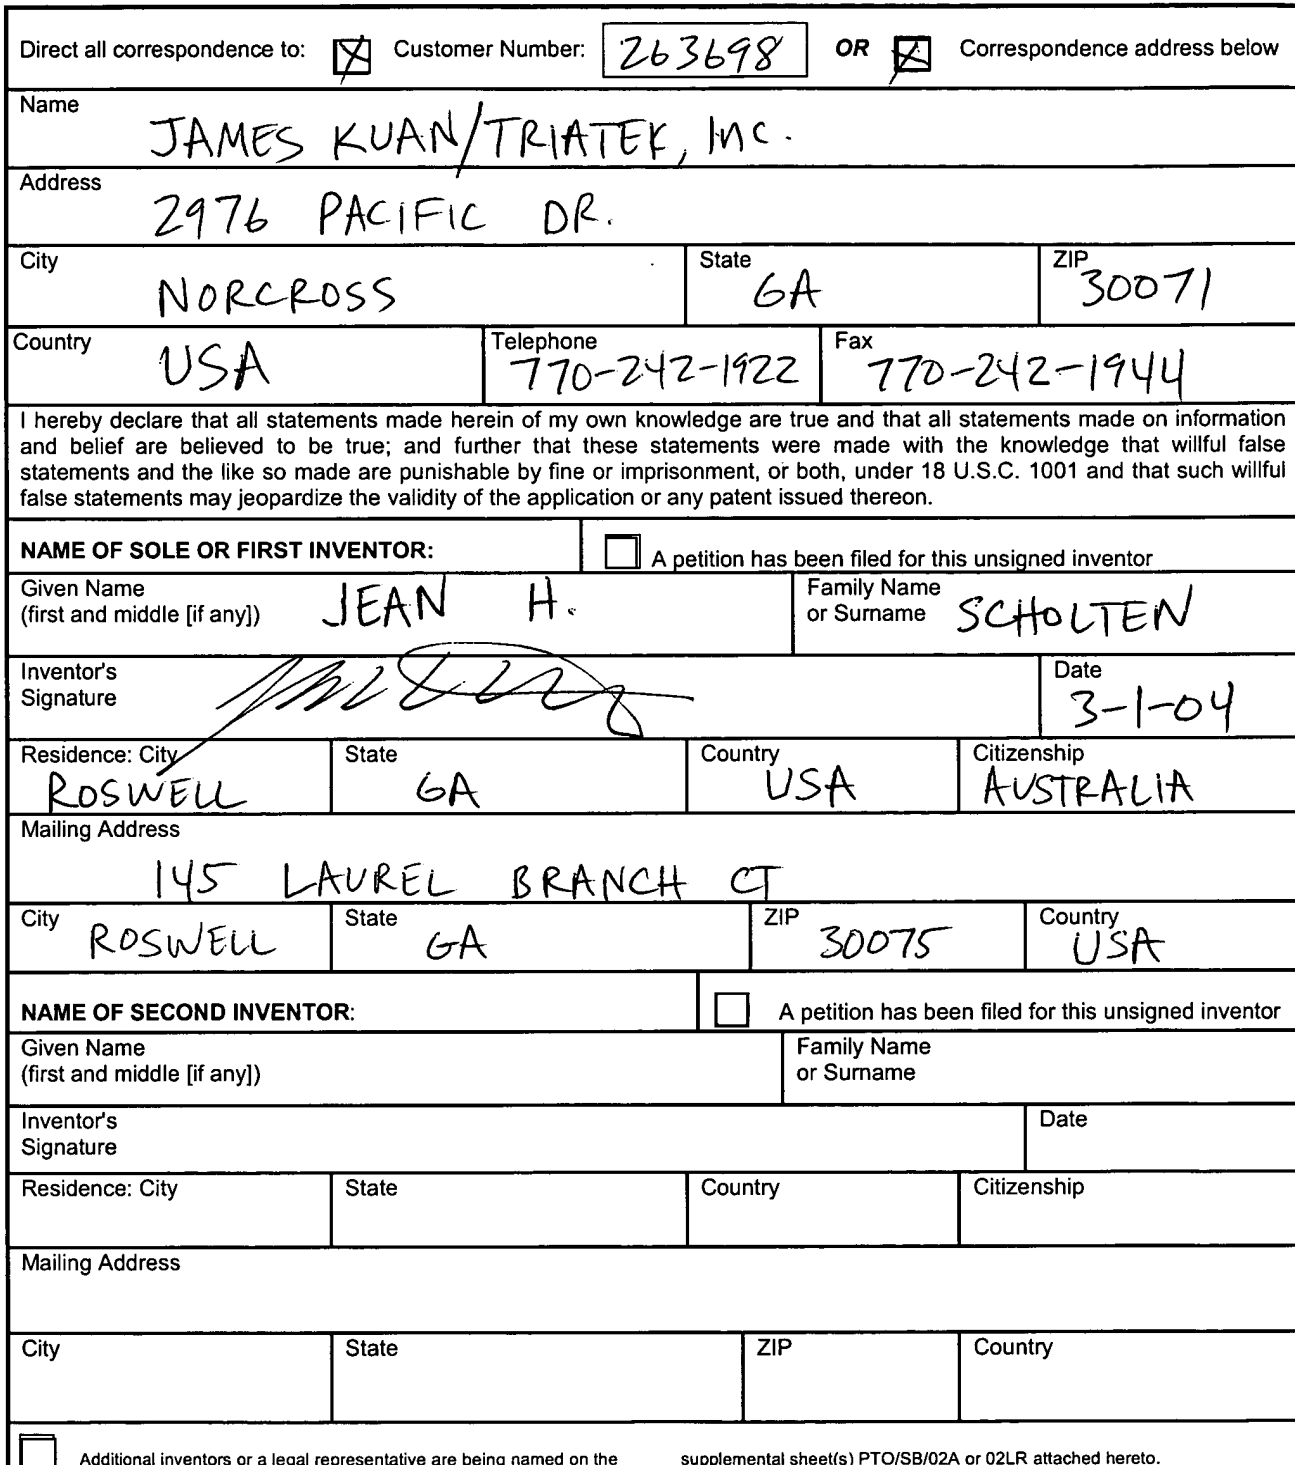 Direct all correspondence to: Customer Number: 263698 OR Correspondence address below
Name
JAMES KUAN/TRIATEK, Inc.
Address
2976 PACIFIC DR.
City State ZIP
NORCROSS GA 30071
Country Telephone Fax
USA 770-242-1922 770-242-1944
I hereby declare that all statements made herein of my own knowledge are true and that all statements made on information
and belief are believed to be true; and further that these statements were made with the knowledge that willful false
statements and the like so made are punishable by fine or imprisonment, or both, under 18 U.S.C. 1001 and that such willful
false statements may jeopardize the validity of the application or any patent issued thereon.
NAME OF SOLE OR FIRST INVENTOR: A petition has been filed for this unsigned inventor
Given Name
(first and middle [if any]) JEAN H.
Family Name
or Surname SCHOLTEN
Inventor's
Signature
Date
3-1-04
Residence: City State Country Citizenship
ROSWELL GA USA AUSTRALIA
Mailing Address
145 LAUREL BRANCH CT
City State ZIP Country
ROSWELL GA 30075 USA
NAME OF SECOND INVENTOR: A petition has been filed for this unsigned inventor
Given Name
(first and middle [if any])
Family Name
or Surname
Inventor's
Signature
Date
Residence: City State Country Citizenship
Mailing Address
City State ZIP Country
Additional inventors or a legal representative are being named on the supplemental sheet(s) PTO/SB/02A or 02LR attached hereto.